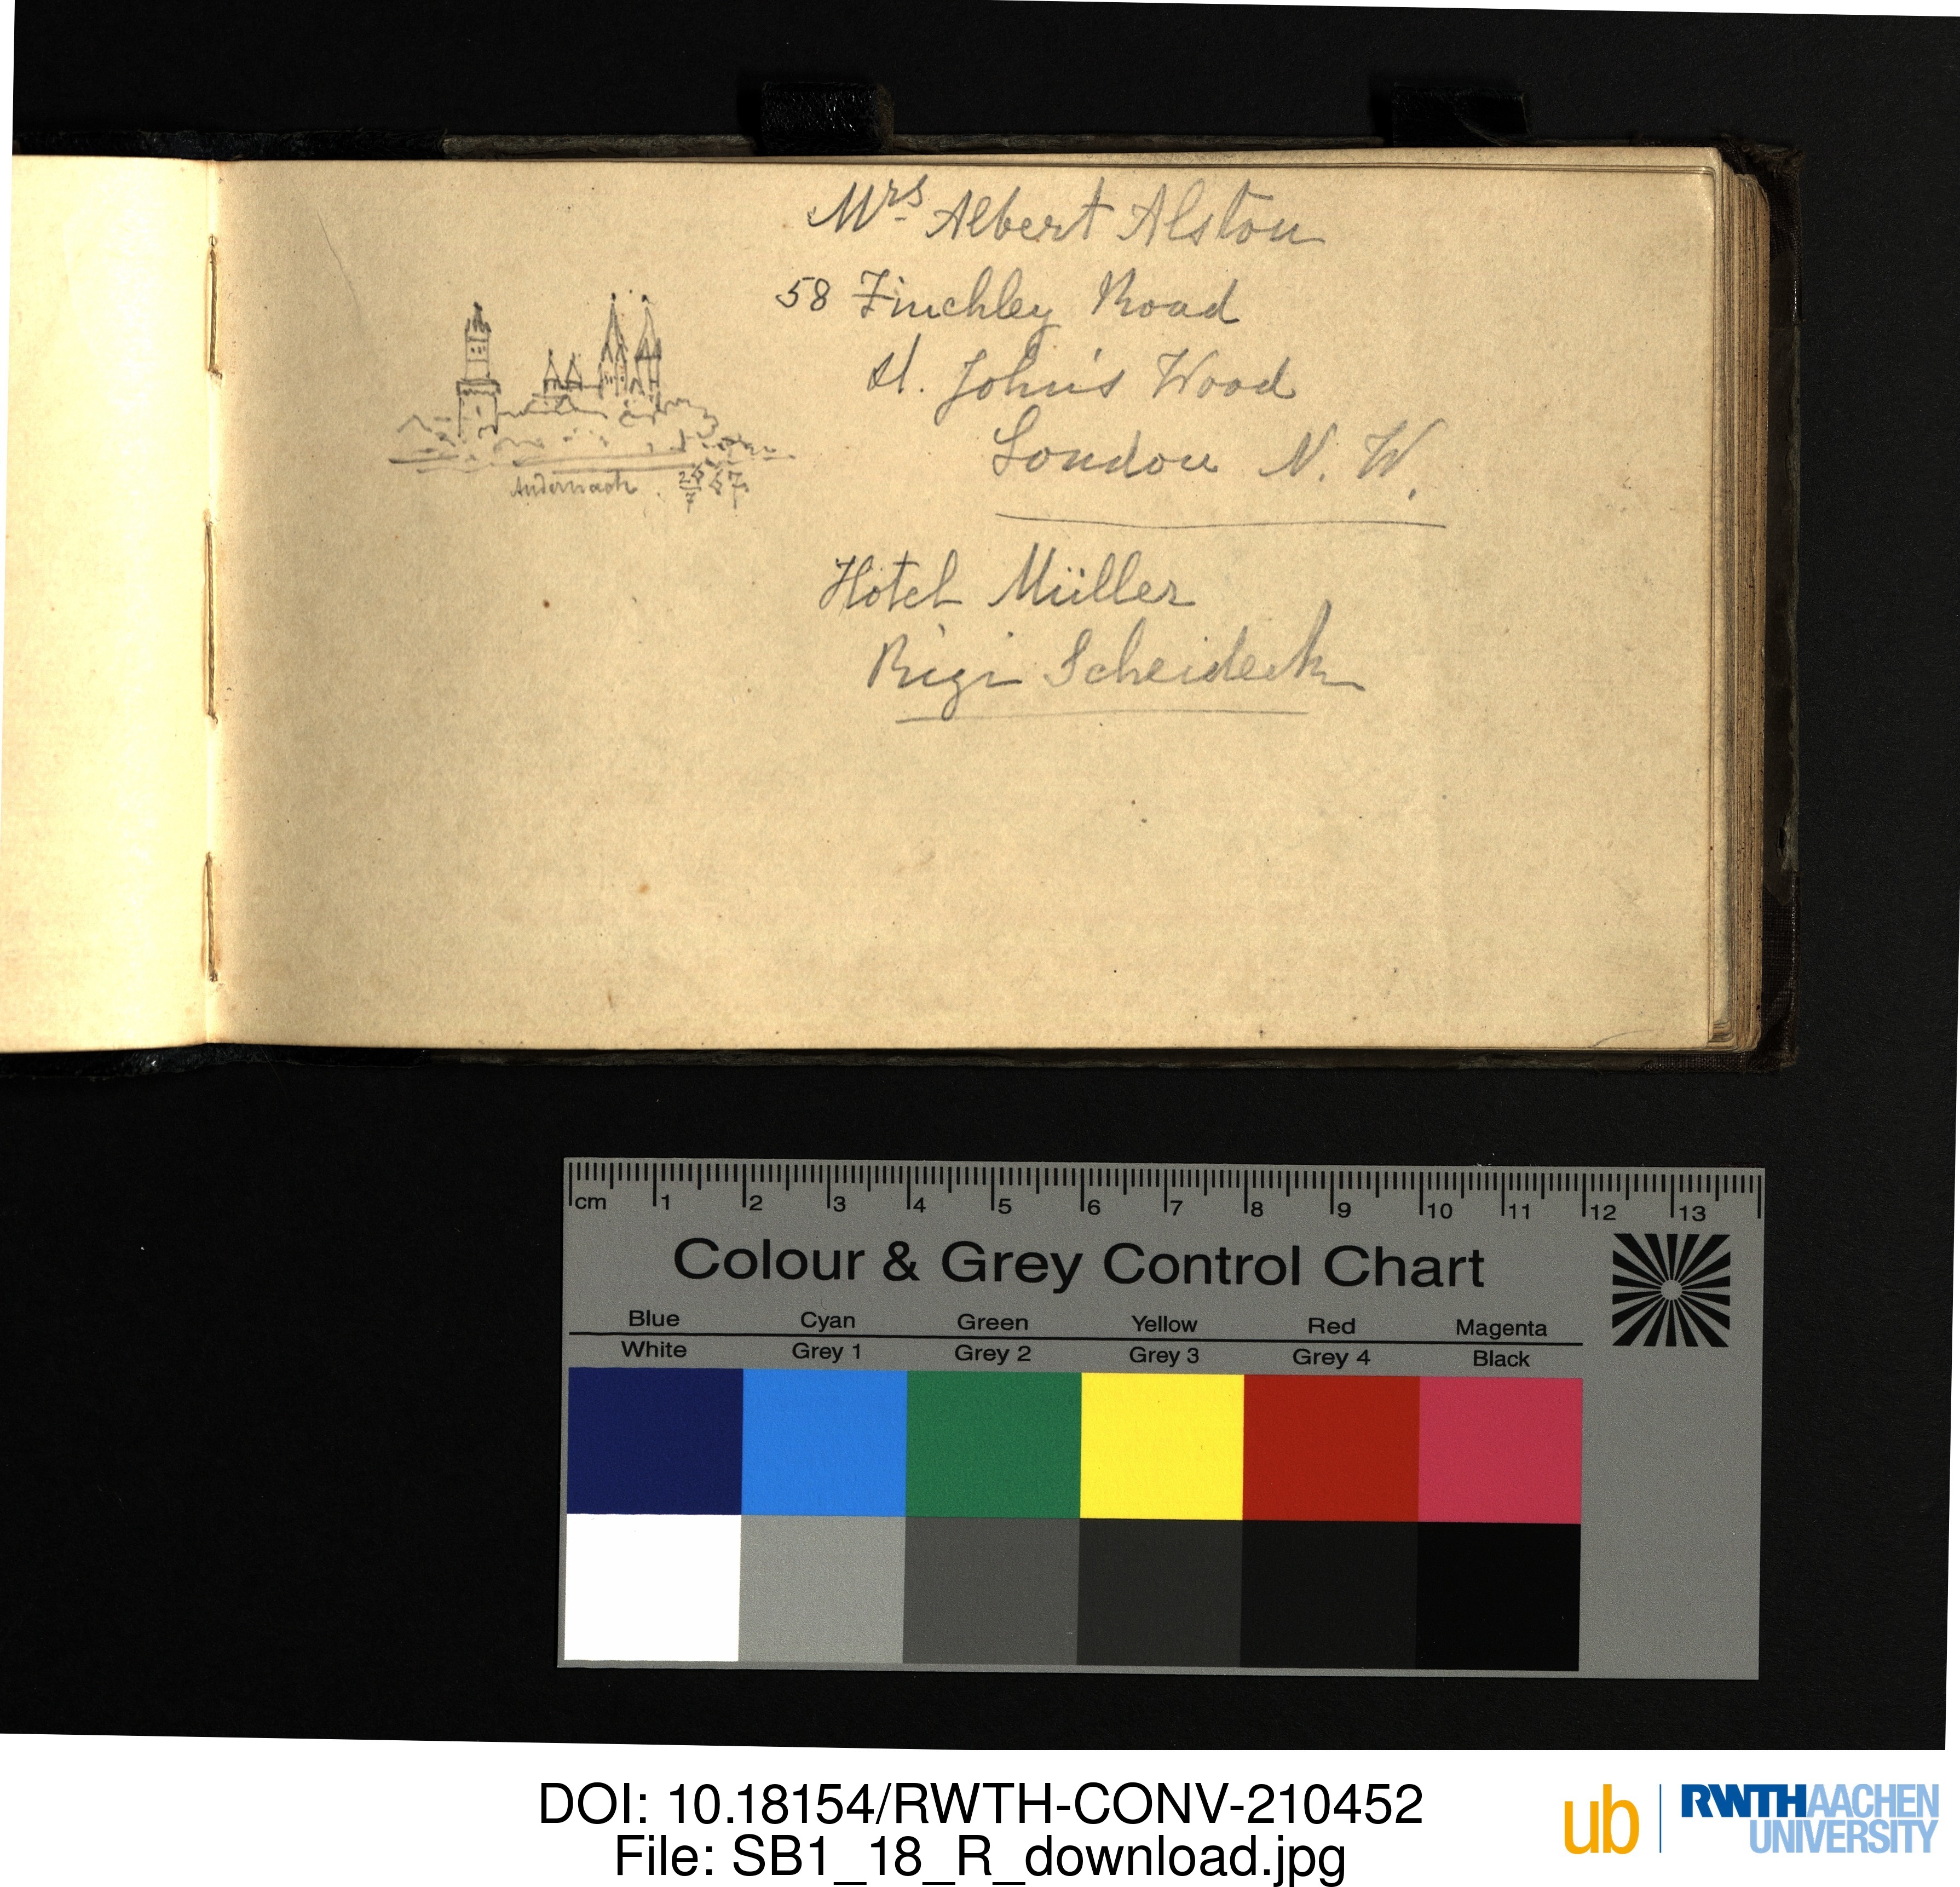 Mrs Albert Alston
58 Finchley Road
St. John's Wood
London N. W.
Andernach
Hotel Müller
Rigi Scheideck
cm 1 2 3 4 5 6 7 8 9 10 11 12 13
Colour & Grey Control Chart
Blue Cyan Green Yellow Red Magenta
White Grey 1 Grey 2 Grey 3 Grey 4 Black
DOI: 10.18154/RWTH-CONV-210452
File: SB1_18_R_download.jpg
ub RWTHAACHEN
UNIVERSITY